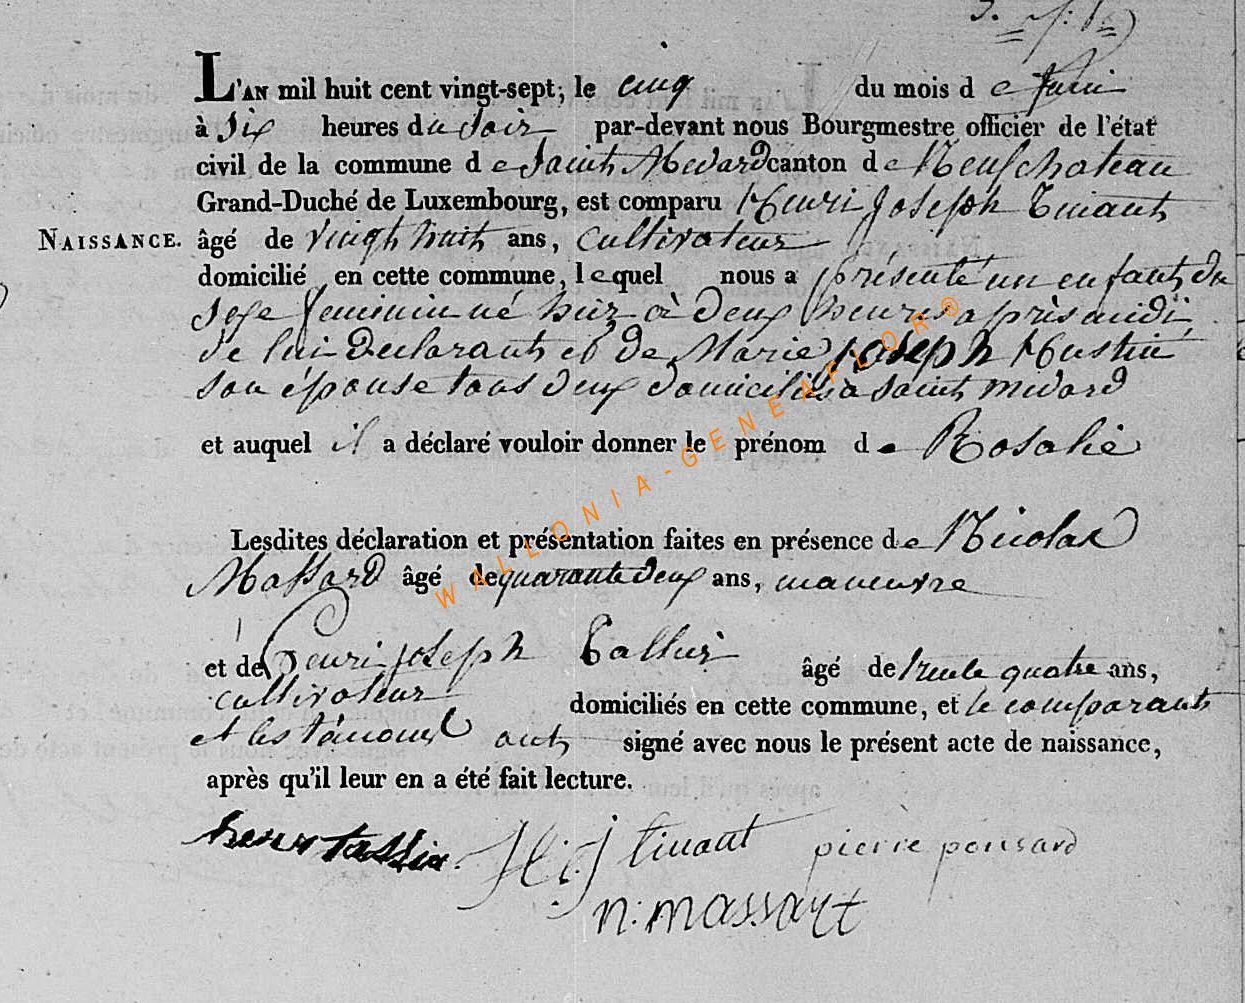 L'AN mil huit cent vingt-sept, le cinq du mois d e Juin
à Six heures du Soir par-devant nous Bourgmestre officier de l'état
civil de la commune d e Saint Medard canton d e Neufchateau
Grand-Duché de Luxembourg, est comparu Henri Joseph Tinant
NAISSANCE. âgé de vingt huit ans, Cultivateur
domicilié en cette commune, lequel nous a présenté un enfant du
Sexe feminin né hier à deux heures après midi,
de lui Declarant et de Marie joseph Hustin
son épouse tous deux domiciliés à Saint Medard
et auquel il a déclaré vouloir donner le prénom de Rosalie
Lesdites déclaration et présentation faites en présence de Nicolas
Massard âgé de quarante deux ans, manuvre
et de henri joseph âgé de trente quatre ans,
cultivateur domiciliés en cette commune, et le comparant
et les témoins ont signé avec nous le présent acte de naissance,
après qu'il leur en a été fait lecture.
henri tassin. H: j tinant pierre ponsard
n: massart
WALLONIA-GENEAFLOR®